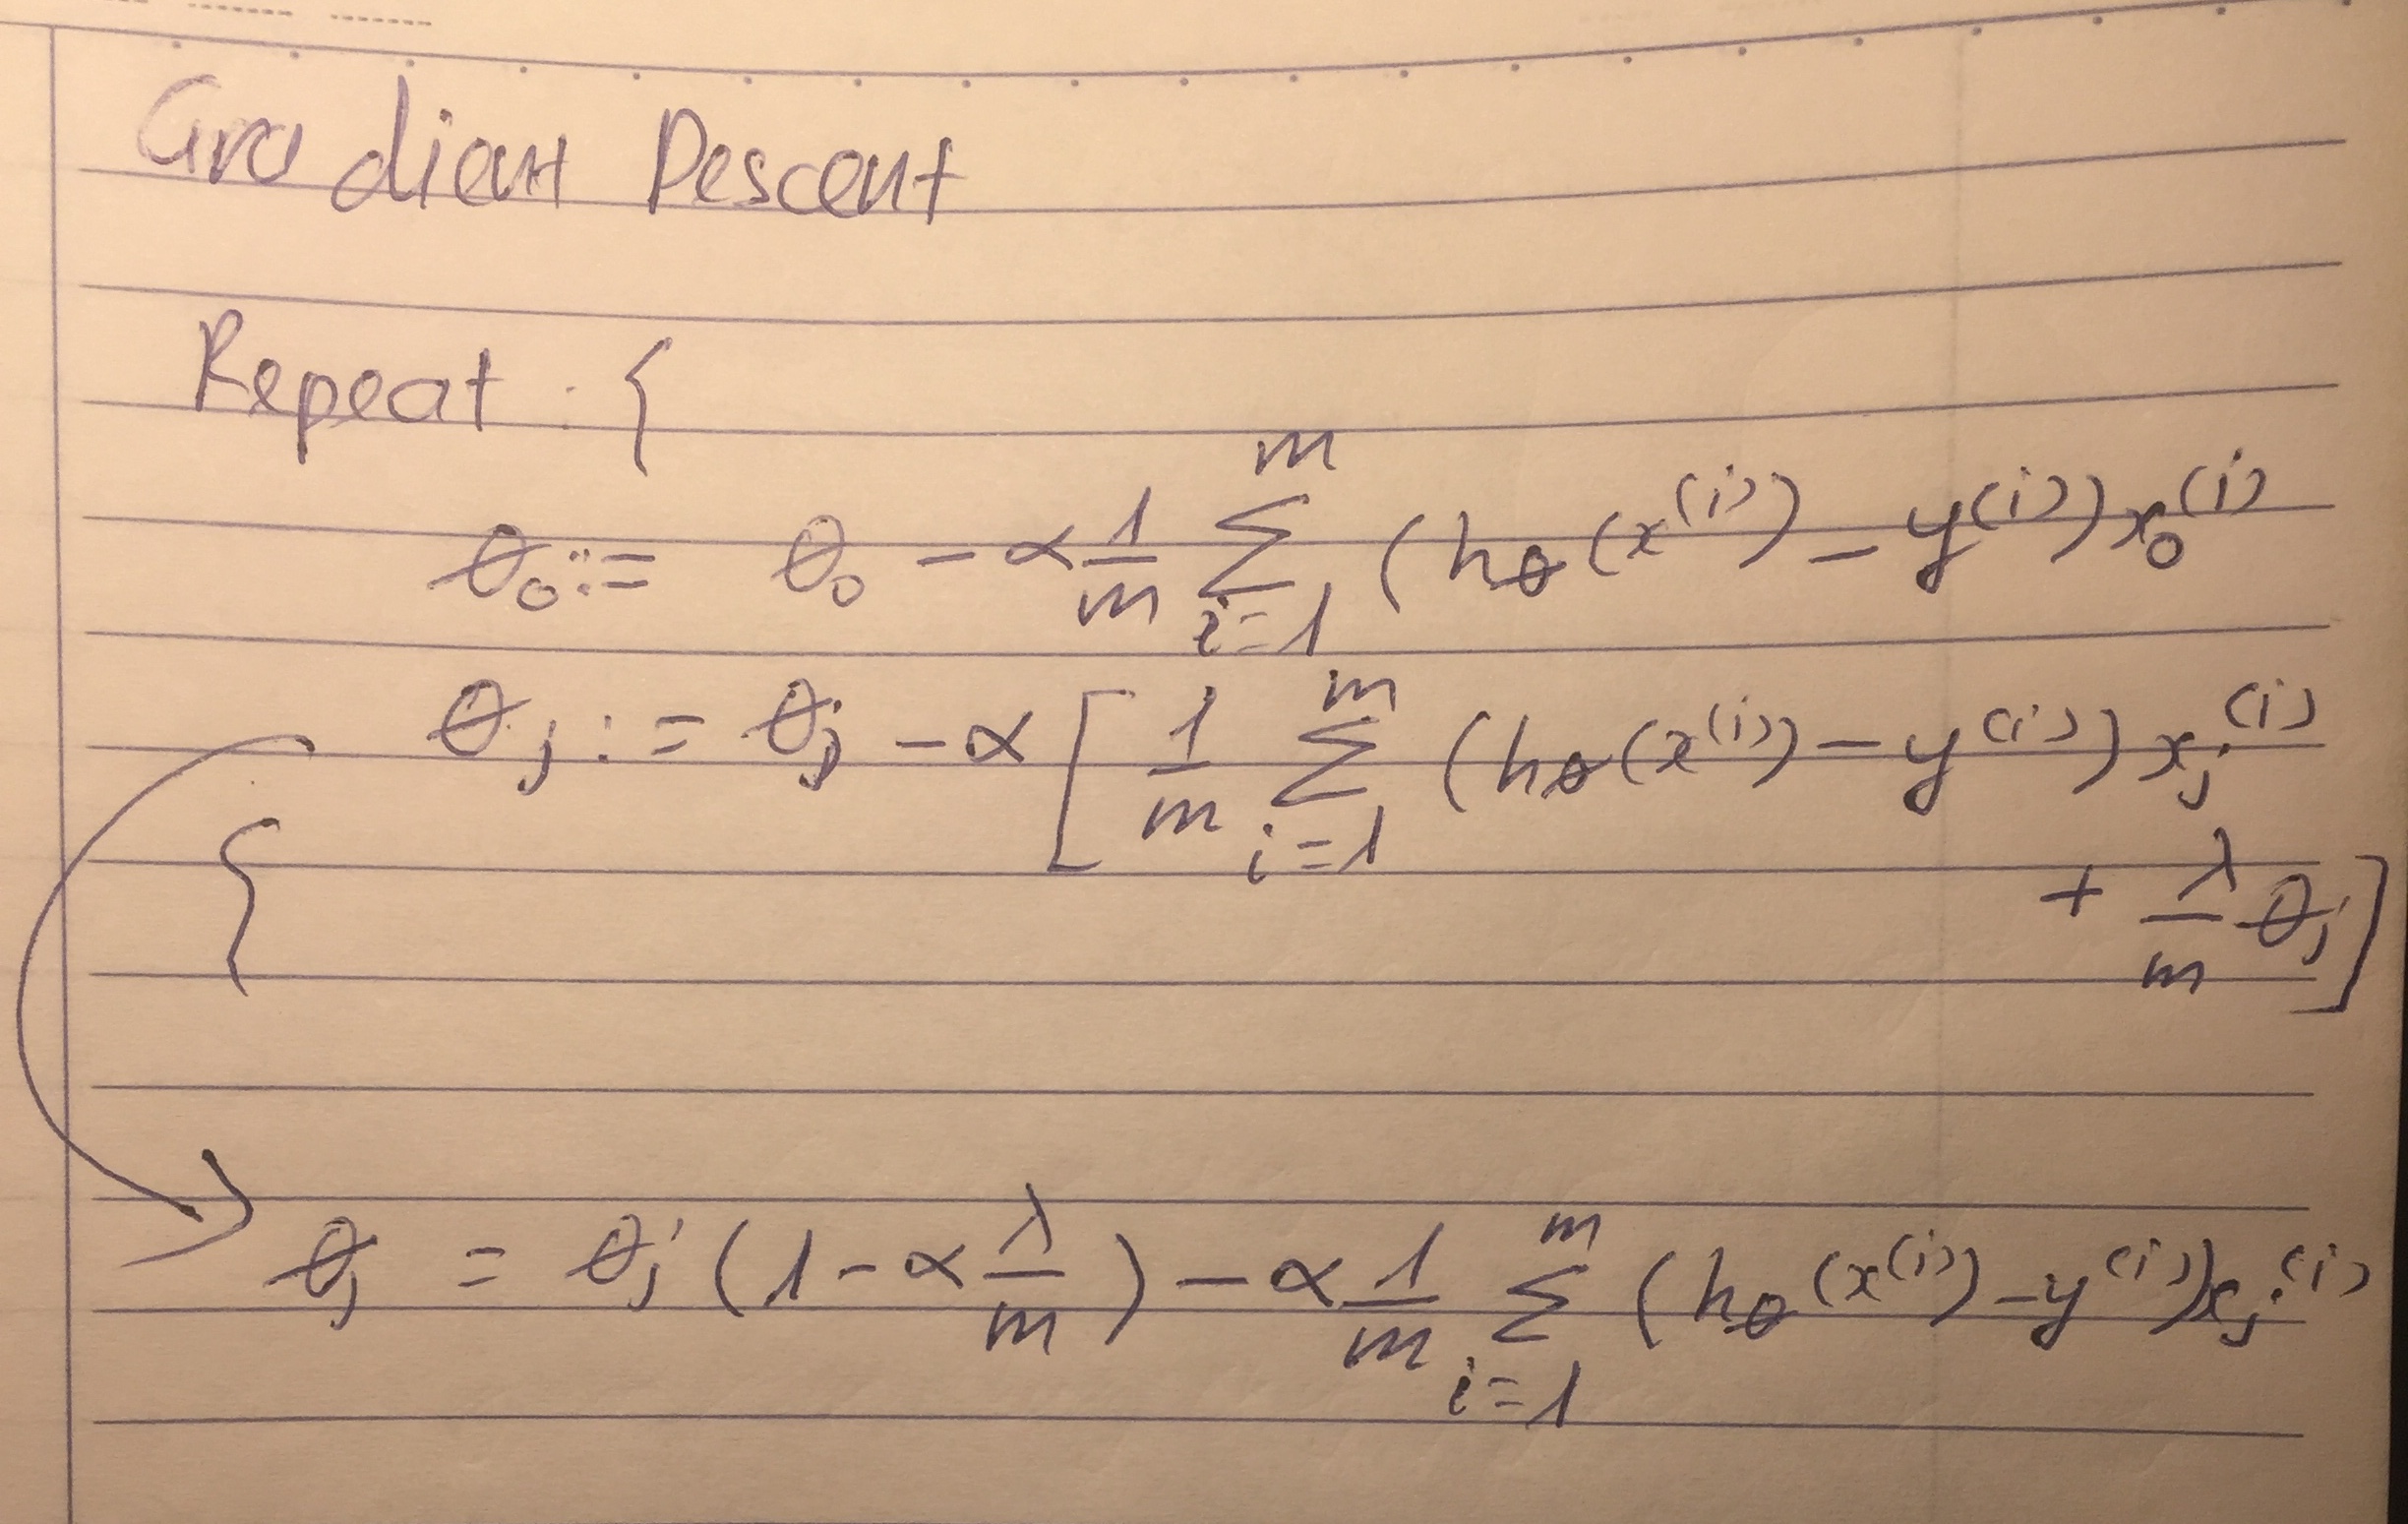 Gradient Descent
Repeat : {
θ₀ := θ₀ - α 1/m Σ_{i=1}^{m} (hθ(x^{(i)}) - y^{(i)}) x₀^{(i)}
θ_j := θ_j - α [ 1/m Σ_{i=1}^{m} (hθ(x^{(i)}) - y^{(i)}) x_j^{(i)}
+ λ/m θ_j ]
{
θ_j = θ_j (1 - α λ/m) - α 1/m Σ_{i=1}^{m} (hθ(x^{(i)}) - y^{(i)}) x_j^{(i)}